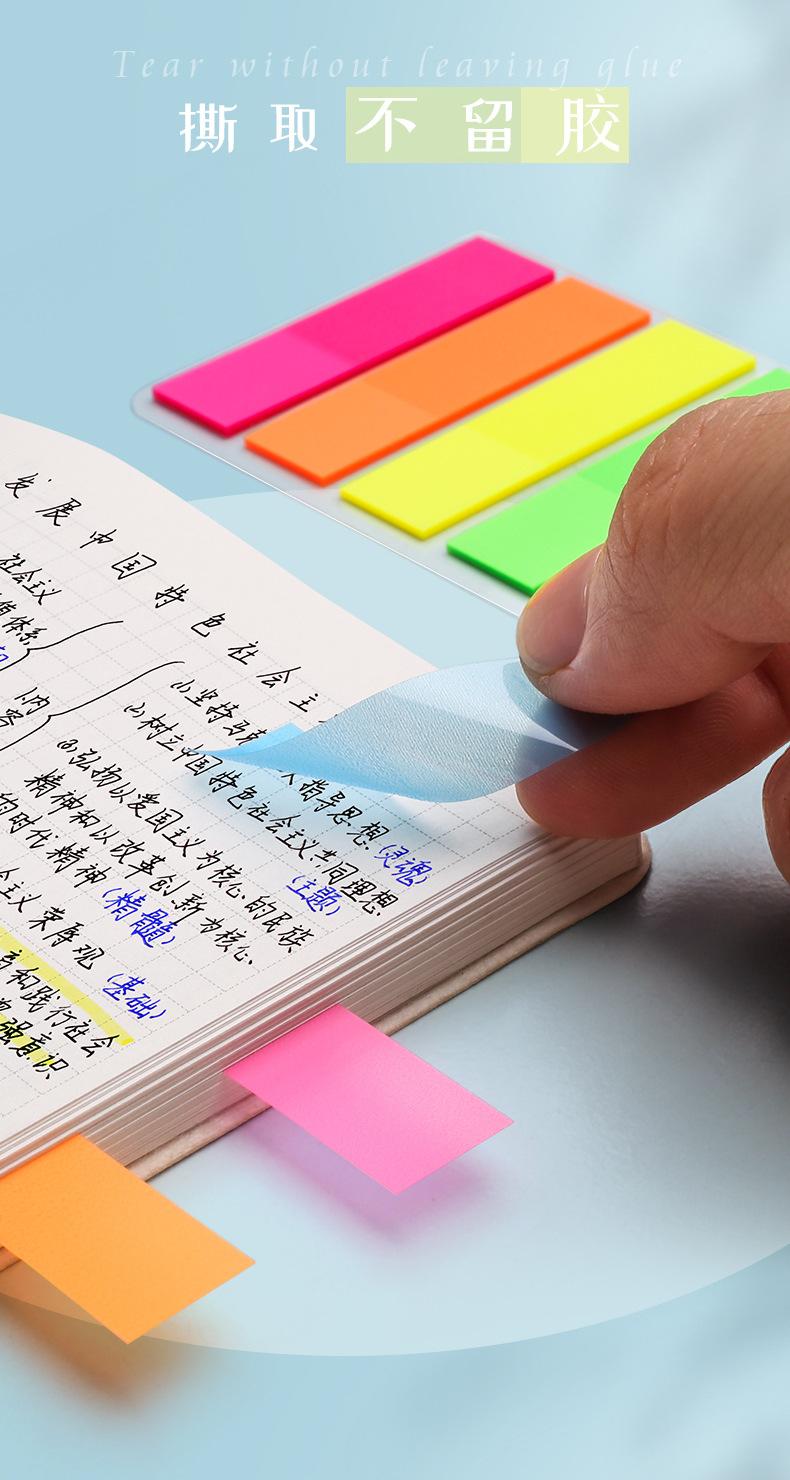 Tear without leaving glue
撕取不留胶
发展中国特色社会主
社会主义
值体系
内
容
(1)坚持马
指导思想(灵魂)
(2)树立中国特色社会主义共同理想
(主题)
(3)弘扬以爱国主义为核心的民族
精神和以改革创新为核心
的时代精神(精髓)
会主义荣辱观(基础)
和践行社会
强意识